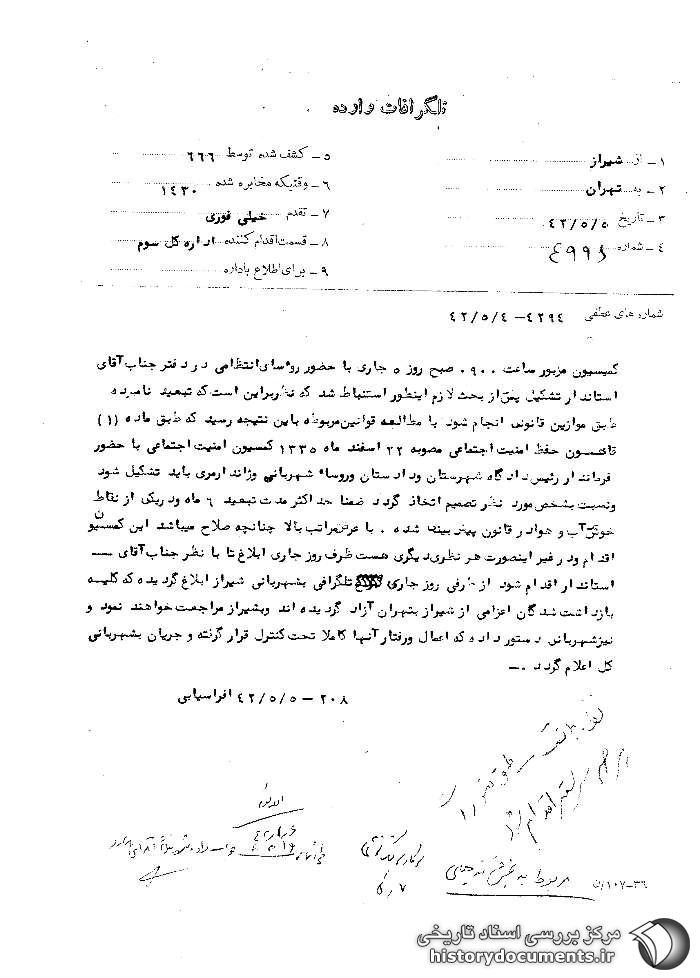 تلگرافات وارده
۱ـ از شیراز
۲ـ به تهران
۳ـ تاریخ ۴۲/۵/۵
۴ـ شماره ۴۹۹۸
۵ـ کشف شده توسط ۶۶۶
۶ـ وقتیکه مخابره شده ۱۴۳۰
۷ـ تقدم خیلی فوری
۸ـ قسمت اقدام کننده اداره کل سوم
۹ـ برای اطلاع باداره
شماره های عطفی ۴۲۹۴ – ۴۲/۵/۴
کمیسیون مزبور ساعت ۰۹۰۰ صبح روز ۵ جاری با حضور روسای انتظامی در دفتر جناب آقای
استاندار تشکیل پس از بحث لازم اینطور استنباط شد که نظر براین است که تبعید نامبرده
طبق موازین قانونی انجام شود با مطالعه قوانین مربوطه باین نتیجه رسید که طبق ماده (۱)
قانون حفظ امنیت اجتماعی مصوبه ۲۲ اسفند ماه ۱۳۳۵ کمسیون امنیت اجتماعی با حضور
فرماندار رئیس دادگاه شهرستان و دادستان وروسای شهربانی وژاندارمری باید تشکیل شود
ونسبت بشخص مورد نظر تصمیم اتخاذ گردد ضمنا حداکثر مدت تبعید ۶ ماه ودریکی از نقاط
خوش آب و هوا در قانون پیش بینی شده . با عرض مراتب بالا چنانچه صلاح میباشد این کمسیون
اقدام ودر غیر اینصورت هر نظری دیگری هست ظرف روز جاری ابلاغ تا با نظر جناب آقای ــ
استاندار اقدام شود از طرفی روز جاری تلگرافی بشهربانی شیراز ابلاغ گردیده که کلیه
بازداشت شدگان اعزامی از شیراز بتهران آزاد گردیده اند وبشیراز مراجعت خواهند نمود و
نیزشهربانی دستور داده که اعمال ورفتار آنها کاملا تحت کنترل قرار گرفته و جریان بشهربانی
کل اعلام گردد .ــ
۲۰۸ – ۴۲/۵/۵ افراسیابی
مربوط به بخش
۳۶-۱۰۷/ن
مرکز بررسی اسناد تاریخی
historydocuments.ir